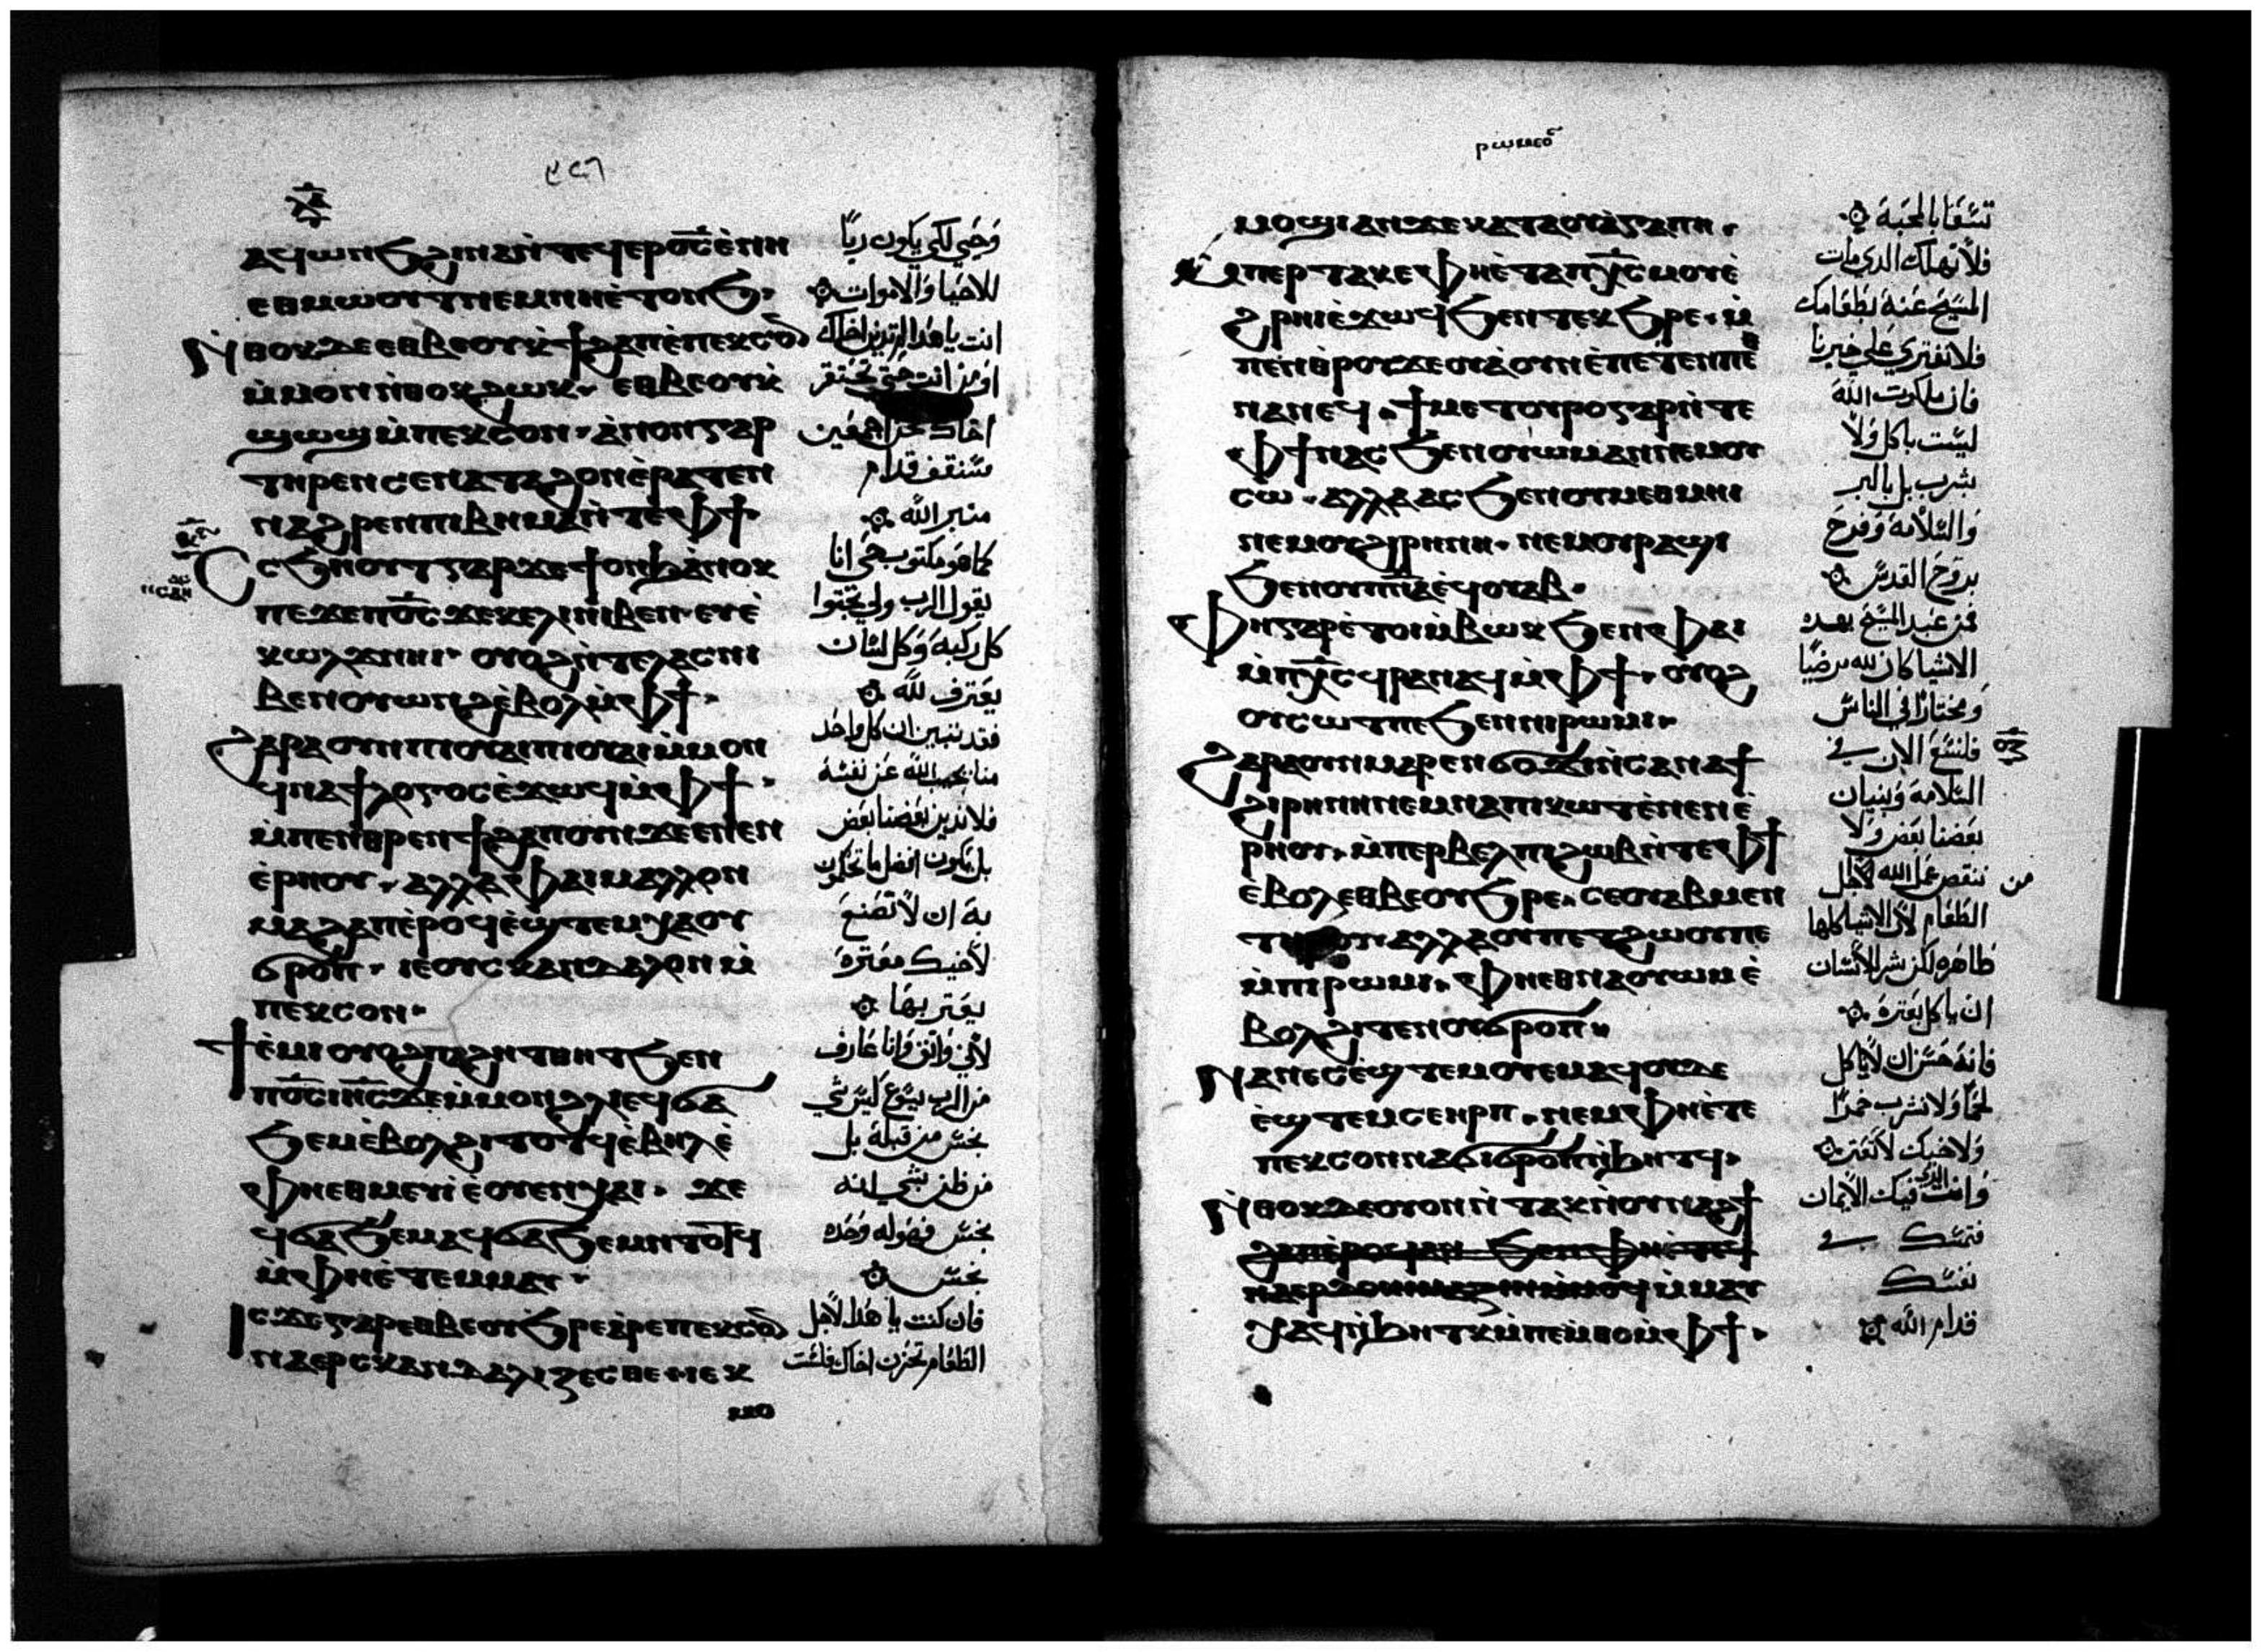 ⲁϥⲱⲛϧ ϩⲓⲛⲁ ⲛ̀ⲧⲉϥⲉⲣⲟ̅ⲥ̅ ⲉ̀ⲛⲏ
ⲉⲑⲙⲱⲟⲩⲧ ⲛⲉⲙ ⲛⲏⲉ̀ⲧⲟⲛϧ·
ⲛ̀ⲑⲟⲕ ⲇⲉ ⲉⲑⲃⲉⲟⲩ ⲕ̀ϯϩⲁⲡ ⲉ̀ⲡⲉⲕⲥⲟ̅
ⲙ̀ⲙⲟⲛ ⲛ̀ⲑⲟⲕ ϩⲱⲕ· ⲉⲑⲃⲉⲟⲩ ⲕ̀
ϣⲱϣ ⲙ̀ⲡⲉⲕⲥⲟⲛ· ⲁ̀ⲛⲟⲛ ⲅⲁⲣ
ⲧⲏⲣⲉⲛ ⲥⲉⲛⲁⲧⲁϩⲟⲛ ⲉ̀ⲣⲁⲧⲉⲛ
ⲛⲁϩⲣⲉⲛ ⲡⲓⲃⲏⲙⲁ ⲛ̀ⲧⲉ ⲫϯ·
ⲥⲥϧⲏⲟⲩⲧ ⲅⲁⲣ ϫⲉ ϯⲟⲛϧ ⲁ̀ⲛⲟⲕ
ⲡⲉϫⲉ ⲡⲟ̅ⲥ̅ ϫⲉ ⲕⲉⲗⲓ ⲛⲓⲃⲉⲛ ⲉⲩⲉ̀
ⲕⲱⲗϫ ⲛⲏⲓ· ⲟⲩⲟϩ ⲛ̀ⲧⲉ ⲗⲁⲥ ⲛⲓ
ⲃⲉⲛ ⲟⲩⲱⲛϩ ⲉ̀ⲃⲟⲗ ⲙ̀ⲫϯ·
ϩⲁⲣⲁ ⲟⲩⲛ ⲡⲓⲟⲩⲁⲓ ⲡⲓⲟⲩⲁⲓ ⲙ̀ⲙⲟⲛ
ϥⲛⲁϯⲗⲟⲅⲟⲥ ⲉ̀ϫⲱϥ ⲙ̀ⲫϯ·
ⲙ̀ⲡⲉⲛⲑⲣⲉⲛϯϩⲁⲡ ⲟⲩⲛ ϫⲉ ⲉⲛⲉⲛ
ⲉ̀ⲣⲏⲟⲩ· ⲁⲗⲗⲁ ⲫⲁⲓ ⲙⲁⲗⲗⲟⲛ
ⲙⲁϩⲁⲡ ⲉ̀ⲣⲟϥ ⲉ̀ϣⲧⲉⲙⲭⲁ ⲟⲩ
ϭⲣⲟⲡ· ⲓⲉ ⲟⲩⲥⲕⲁⲛⲇⲁⲗⲟⲛ ⲙ̀
ⲡⲉⲕⲥⲟⲛ·
ϯⲉ̀ⲙⲓ ⲟⲩⲟϩ ⲡⲁϩⲏⲧ ⲑⲏⲧ ϧⲉⲛ
ⲡⲟ̅ⲥ̅ ⲓⲏ̅ⲥ̅ ϫⲉ ⲙ̀ⲙⲟⲛ ϩⲗⲓ ⲉϥϭⲁ
ϧⲉⲙ ⲉ̀ⲃⲟⲗϩⲓⲧⲟⲧϥ ⲉ̀ⲃⲏⲗ ⲉ̀
ⲫⲏⲉⲑⲙⲉⲩⲓ ⲉ̀ⲟⲩⲉⲛⲭⲁⲓ· ϫⲉ
ϥϭⲁϧⲉⲙ ⲁϥϭⲁϧⲉⲙ ⲛ̀ⲧⲟⲧϥ
ⲙ̀ⲫⲏⲉ̀ⲧⲉⲙⲙⲁⲩ·
ⲓⲥϫⲉ ⲅⲁⲣ ⲉⲑⲃⲉ ⲟⲩϧⲣⲉ ⲁ̀ⲣⲉ ⲡⲉⲕⲥⲟ̅
ⲛⲁⲉⲣⲥⲕⲁⲛⲇⲁⲗⲓⲍⲉⲥⲑⲉ ⲓⲉ ⲕ
وَحَيي لكي يكون ربًا
للاحيا وَالاموات
انت يا هذا لم تدين اخاك
او من انت حتى تحتقر
اخاك نحن اجمعين
سَنقف قدام
منبر الله
كما هو مكتوب حي انا
يقول الرب ولي تجثوا
كل ركبة وَكل لسَان
يعترف لله
فقد تبين ان كل واحد
منا يجيب الله عن نفسَه
فلا ندين بعضنا بعض
بل يكون افضل ما تحكمون
به ان لا تصنع
لاخيك معثرة
يعثر بها
لاني واثق وَانا عَارف
من الرب يسَوع ليسَ شي
نجسَ من قبله بل
من ظن بشي انه
نجسَ فهو له وَحده
نجسَ
فان كنت يا هذا لاجل
الطعام تحزن اخاك فلسَت
ⲣⲱⲙⲉⲟⲥ
ⲙⲟϣⲓ ⲁⲛ ϫⲉ ⲕⲁⲧⲁ ⲟⲩⲁ̀ⲅⲁⲡⲏ·
ⲙ̀ⲡⲉⲣⲧⲁⲕⲉ ⲫⲏⲉ̀ⲧⲁ ⲡⲭ̅ⲥ̅ ⲙⲟⲩ ⲉ̀
ϩⲣⲏⲓ ⲉ̀ϫⲱϥ ϧⲉⲛ ⲧⲉⲕϧⲣⲉ· ⲙ̀
ⲡⲉⲛⲑⲣⲟⲩϫⲉⲟⲩⲁ̀ ⲟⲩⲛ ⲉ̀ⲡⲉⲧⲉⲛⲡⲉⲑ
ⲛⲁⲛⲉϥ· ϯⲙⲉⲧⲟⲩⲣⲟ ⲅⲁⲣ ⲛ̀ⲧⲉ
ⲫϯ ⲛⲁⲥ ϧⲉⲛ ⲟⲩⲱⲙ ⲁⲛ ⲛⲉⲙ ⲟⲩ
ⲥⲱ· ⲁⲗⲗⲁ ⲁⲥ ϧⲉⲛ ⲟⲩⲙⲉⲑⲙⲏⲓ
ⲛⲉⲙ ⲟⲩϩⲓⲣⲏⲛⲏ· ⲛⲉⲙ ⲟⲩⲣⲁϣⲓ
ϧⲉⲛ ⲟⲩⲡ̅ⲛ̅ⲁ̅ ⲉ̀ϥⲟⲩⲁⲃ·
ⲫⲏ ⲅⲁⲣ ⲉ̀ⲧⲟⲓ ⲙ̀ⲃⲱⲕ ϧⲉⲛ ⲫⲁⲓ
ⲙ̀ⲡⲭ̅ⲥ̅ ϥⲣⲁⲛⲁϥ ⲙ̀ⲫϯ· ⲟⲩⲟϩ
ⲟⲩⲥⲱⲧⲡ ⲡⲉ ϧⲉⲛ ⲛⲓⲣⲱⲙⲓ·
ϩⲁⲣⲁ ⲟⲩⲛ ⲙⲁⲣⲉⲛϭⲟϫⲓ ⲛ̀ⲥⲁ ⲛⲁ ϯ
ϩⲓⲣⲏⲛⲏ ⲛⲉⲙ ⲛⲁ ⲡⲓⲕⲱⲧ ⲉ̀ⲛⲉⲛⲉ̀
ⲣⲏⲟⲩ· ⲙ̀ⲡⲉⲣⲃⲉⲗ ⲡⲓϩⲱⲃ ⲛ̀ⲧⲉ ⲫϯ
ⲉ̀ⲃⲟⲗ ⲉⲑⲃⲉ ⲟⲩϧⲣⲉ· ⲥⲉⲟⲩⲁⲃ ⲙⲉⲛ
ⲧⲏⲣⲟⲩ· ⲁⲗⲗⲁ ⲟⲩⲡⲉⲧϩⲱⲟⲩ ⲡⲉ
ⲙ̀ⲡⲓⲣⲱⲙⲓ· ⲫⲏⲉⲑⲛⲁⲟⲩⲱⲙ ⲉ̀
ⲃⲟⲗϩⲓⲧⲉⲛ ⲟⲩϭⲣⲟⲡ·
ⲛⲁⲛⲉⲥ ⲉ̀ϣⲧⲉⲙⲟⲩⲉⲙ ⲁϥ ⲟⲩⲇⲉ
ⲉ̀ϣⲧⲉⲙⲥⲉ ⲏⲣⲡ· ⲛⲉⲙ ⲫⲏⲉ̀ⲧⲉ
ⲡⲉⲕⲥⲟⲛ ⲛⲁϭⲓϭⲣⲟⲡ ⲛ̀ϧⲏⲧϥ·
ⲛ̀ⲑⲟⲕ ⲇⲉ ⲟⲩⲟⲛ ⲛ̀ⲧⲁⲕ ⲛ̀ⲟⲩⲛⲁϩϯ
ⲙ̀ⲙⲁⲩ
ⲭⲁϥ ⲛ̀ϧⲏⲧⲕ ⲙ̀ⲡⲉⲙ̀ⲑⲟ ⲙ̀ⲫϯ·
تسَعَا بالمحبة
فلا تهلك الذي مات
المسَيح عنه بطعامك
فلا نفتري على خيرنا
فان ملكوت الله
ليسَت باكل وَلا
بشرب بل بالبر
وَالسَلامة وَفرح
بروح القدس
فمن عبد المسَيح بهذه
الاشيا كان لله مرضيًا
وَمختارًا في الناسَ
فلنتبع الان في
السَلامة وَبنيان
بعضنا بعض وَلا
ننقض عمل الله من اجل
الطعام لان الاشيا كلها
طاهره لكن شر للانسَان
ان ياكل بعثرة
فانه حسَن ان لا ياكل
لحمًا وَلا نشرب خمرًا
وَلا اخيك لا تعثر
وَانت الذي فيك الايمان
فتمسَك في
نفسَك
قدام الله